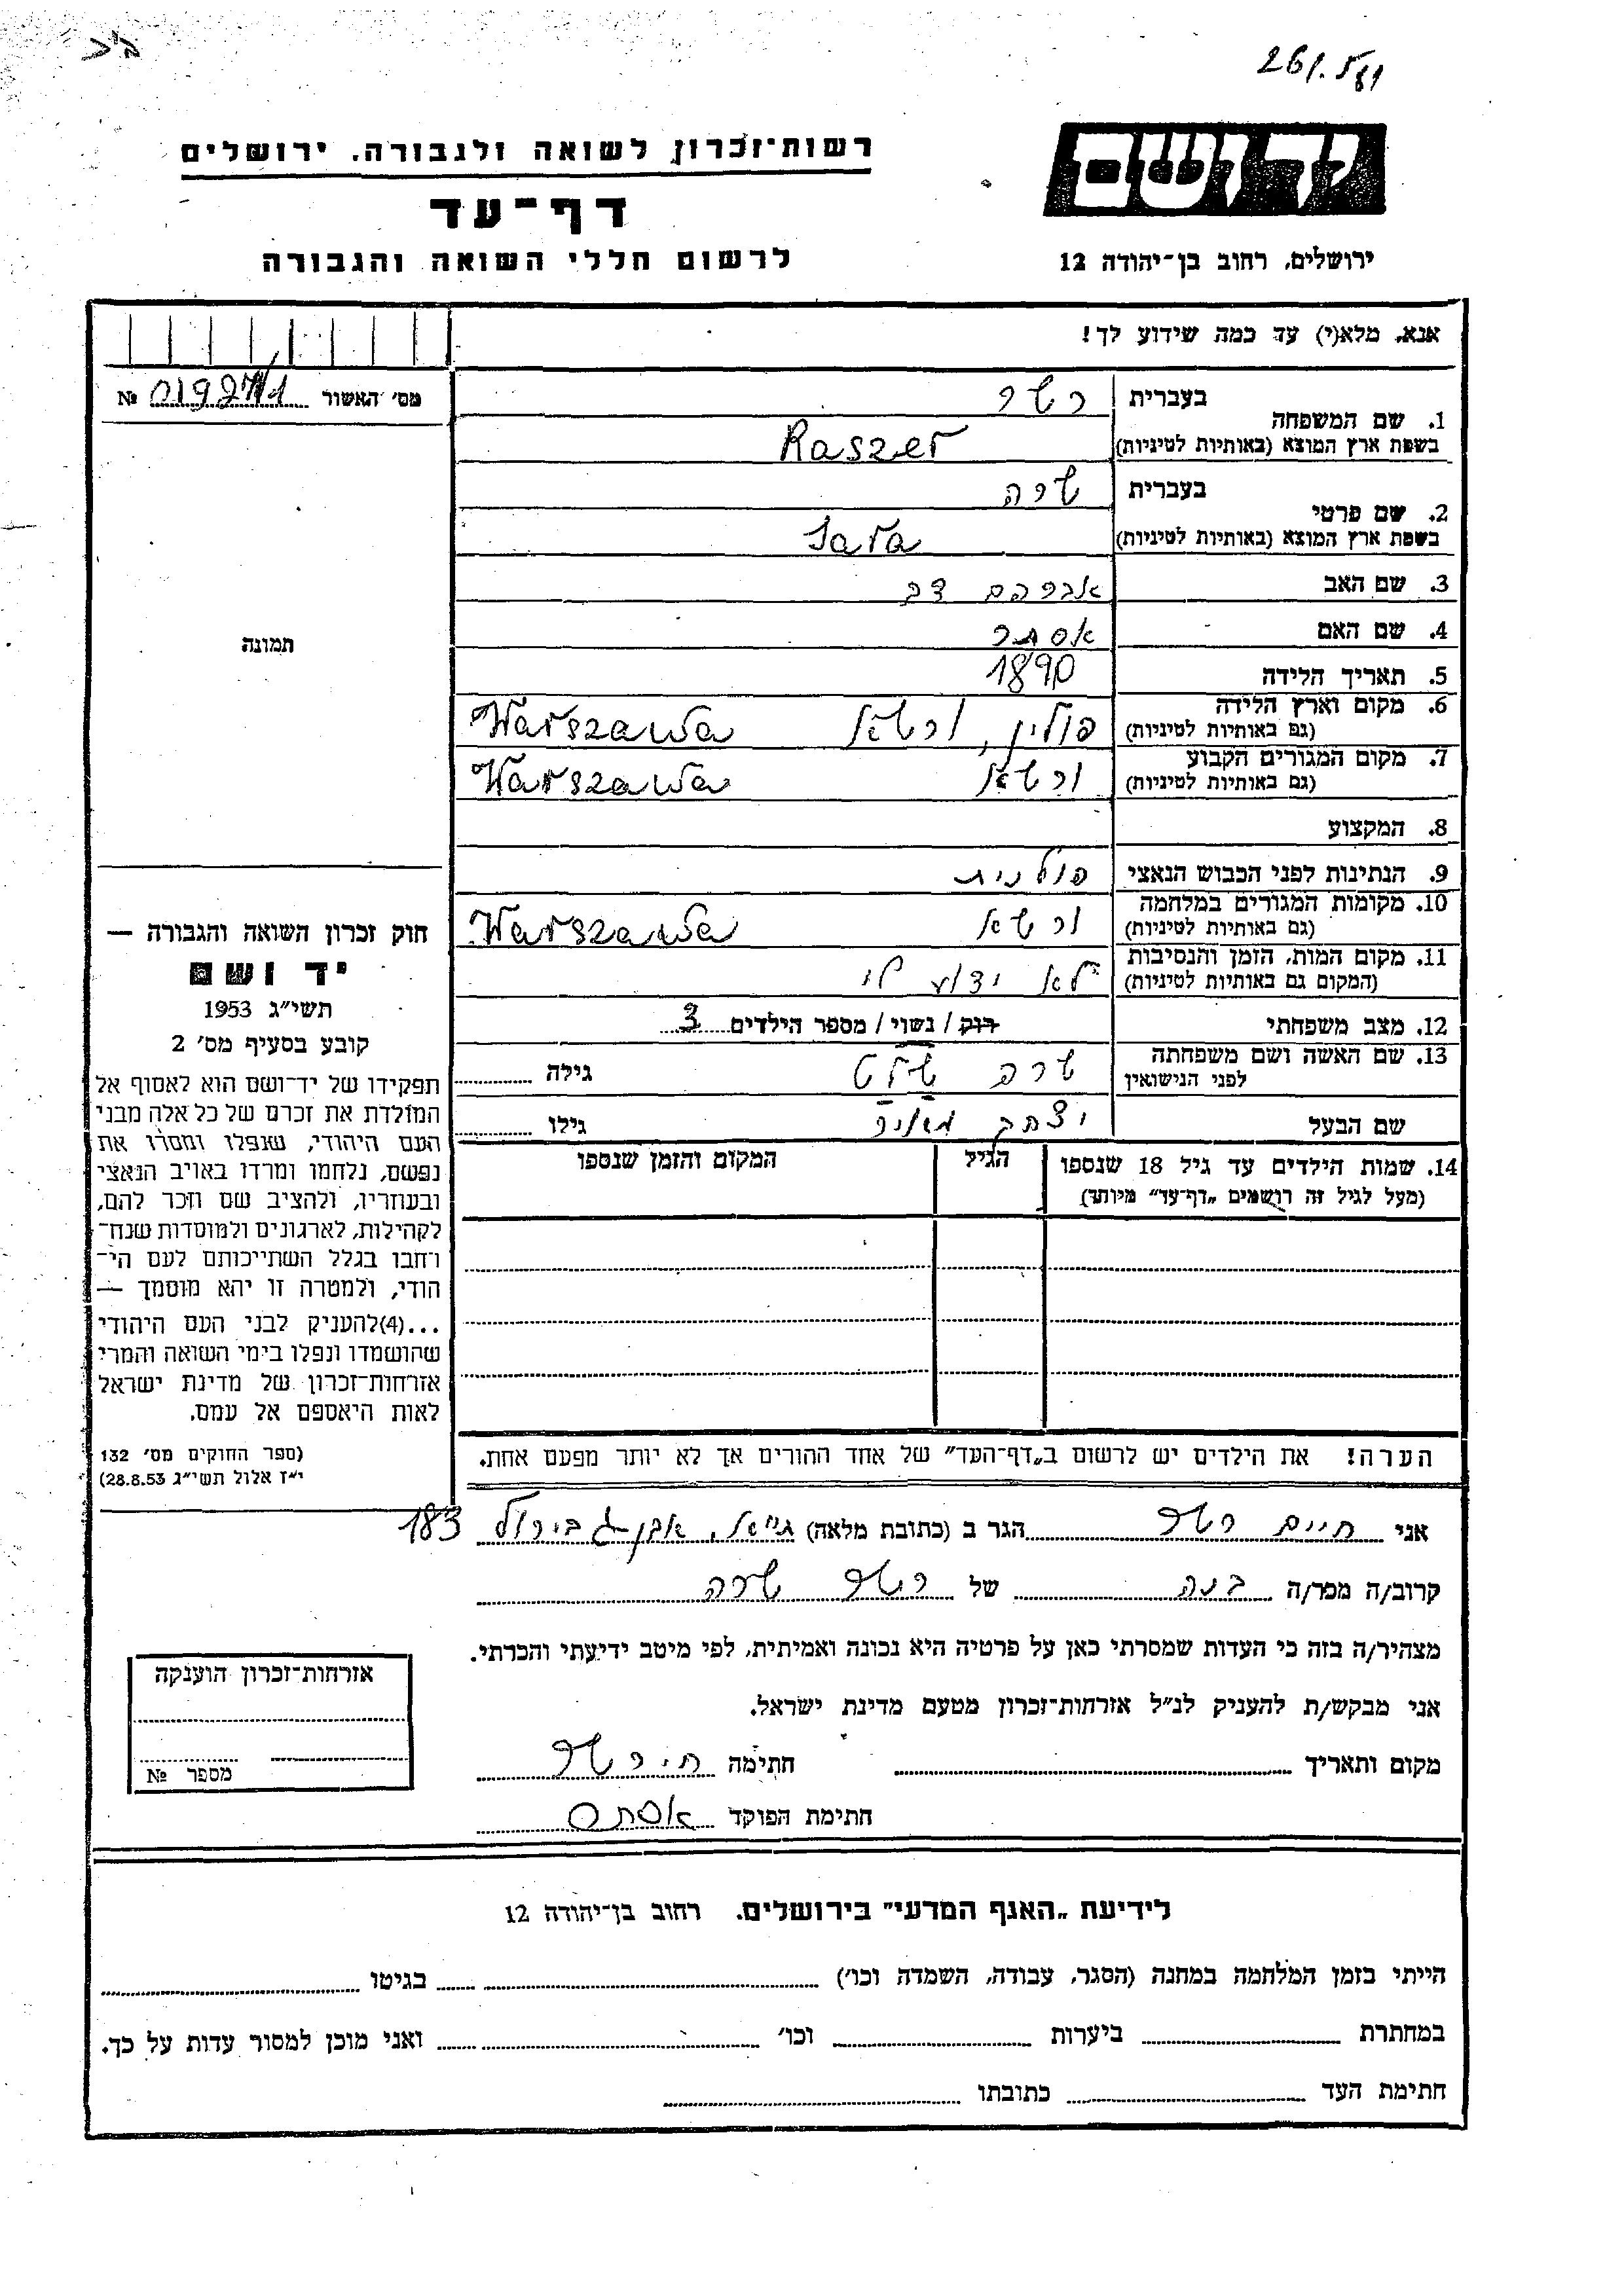 261.581
יד ושם
רשות־זכרון לשואה ולגבורה. ירושלים
דף־עד
לרשום חללי השואה והגבורה
ירושלים, רחוב בן־יהודה 12
אנא, מלא(י) עד כמה שידוע לך!
מס׳ האשור №
1. שם המשפחה בעברית רשר
בשפת ארץ המוצא (באותיות לטיניות) Raszer
2. שם פרטי בעברית שרה
בשפת ארץ המוצא (באותיות לטיניות) Sara
3. שם האב אברהם דב
4. שם האם אסתר
5. תאריך הלידה 1890
6. מקום וארץ הלידה (גם באותיות לטיניות) פולין, ורשא Warszawa
7. מקום המגורים הקבוע (גם באותיות לטיניות) ורשא Warszawa
8. המקצוע
9. הנתינות לפני הכבוש הנאצי פולנית
10. מקומות המגורים במלחמה (גם באותיות לטיניות) ורשא Warszawa
11. מקום המות, הזמן והנסיבות (המקום גם באותיות לטיניות) לא ידוע לי
12. מצב משפחתי רוק / נשוי / מספר הילדים 3
13. שם האשה ושם משפחתה לפני הנישואין שרה גילה
שם הבעל יצחק מאיר גילו
14. שמות הילדים עד גיל 18 שנספו הגיל המקום והזמן שנספו
(מעל לגיל זה רושמים „דף־עד״ מיוחד)
הערה! את הילדים יש לרשום ב„דף־העד״ של אחד ההורים אך לא יותר מפעם אחת.
תמונה
חוק זכרון השואה והגבורה —
יד ושם
תשי״ג 1953
קובע בסעיף מס׳ 2
תפקידו של יד־ושם הוא לאסוף אל
המולדת את זכרם של כל אלה מבני
העם היהודי, שנפלו ומסרו את
נפשם, נלחמו ומרדו באויב הנאצי
ובעוזריו, ולהציב שם וזכר להם,
לקהילות, לארגונים ולמוסדות שנח־
רחבו בגלל השתייכותם לעם הי־
הודי, ולמטרה זו יהא מוסמך —
...(4)להעניק לבני העם היהודי
שהושמדו ונפלו בימי השואה והמרי
אזרחות־זכרון של מדינת ישראל
לאות היאספם אל עמם.
(ספר החוקים מס׳ 132
י״ז אלול תשי״ג 28.8.53)
אני חיים רשר הגר ב (כתובת מלאה) אבן־גבירול 183
קרוב/ה מכר/ה בנה של רשר שרה
מצהיר/ה בזה כי העדות שמסרתי כאן על פרטיה היא נכונה ואמיתית, לפי מיטב ידיעתי והכרתי.
אני מבקש/ת להעניק לנ״ל אזרחות־זכרון מטעם מדינת ישראל.
מקום ותאריך חתימה ח. רשר
חתימת הפוקד
אזרחות־זכרון הוענקה
מספר №
לידיעת „האגף המדעי״ בירושלים. רחוב בן־יהודה 12
הייתי בזמן המלחמה במחנה (הסגר, עבודה, השמדה וכו׳) בגיטו
במחתרת ביערות וכו׳ ואני מוכן למסור עדות על כך.
חתימת העד כתובתו